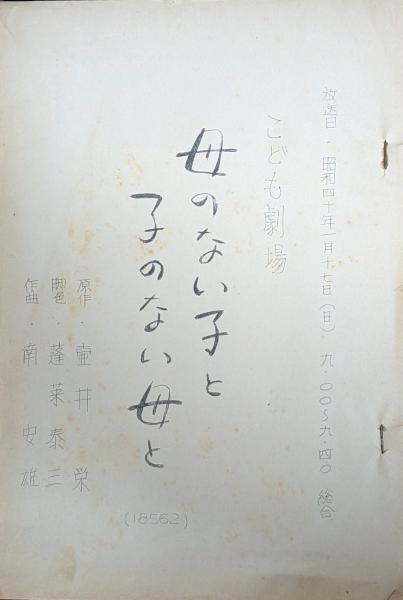 放送日・昭和四十年一月十七日(日) 九・〇〇~九・四〇 総合
こども劇場
母のない子と
子のない母と
原作・壷井栄
脚色・蓬莱泰三
作曲・南安雄
(18562)